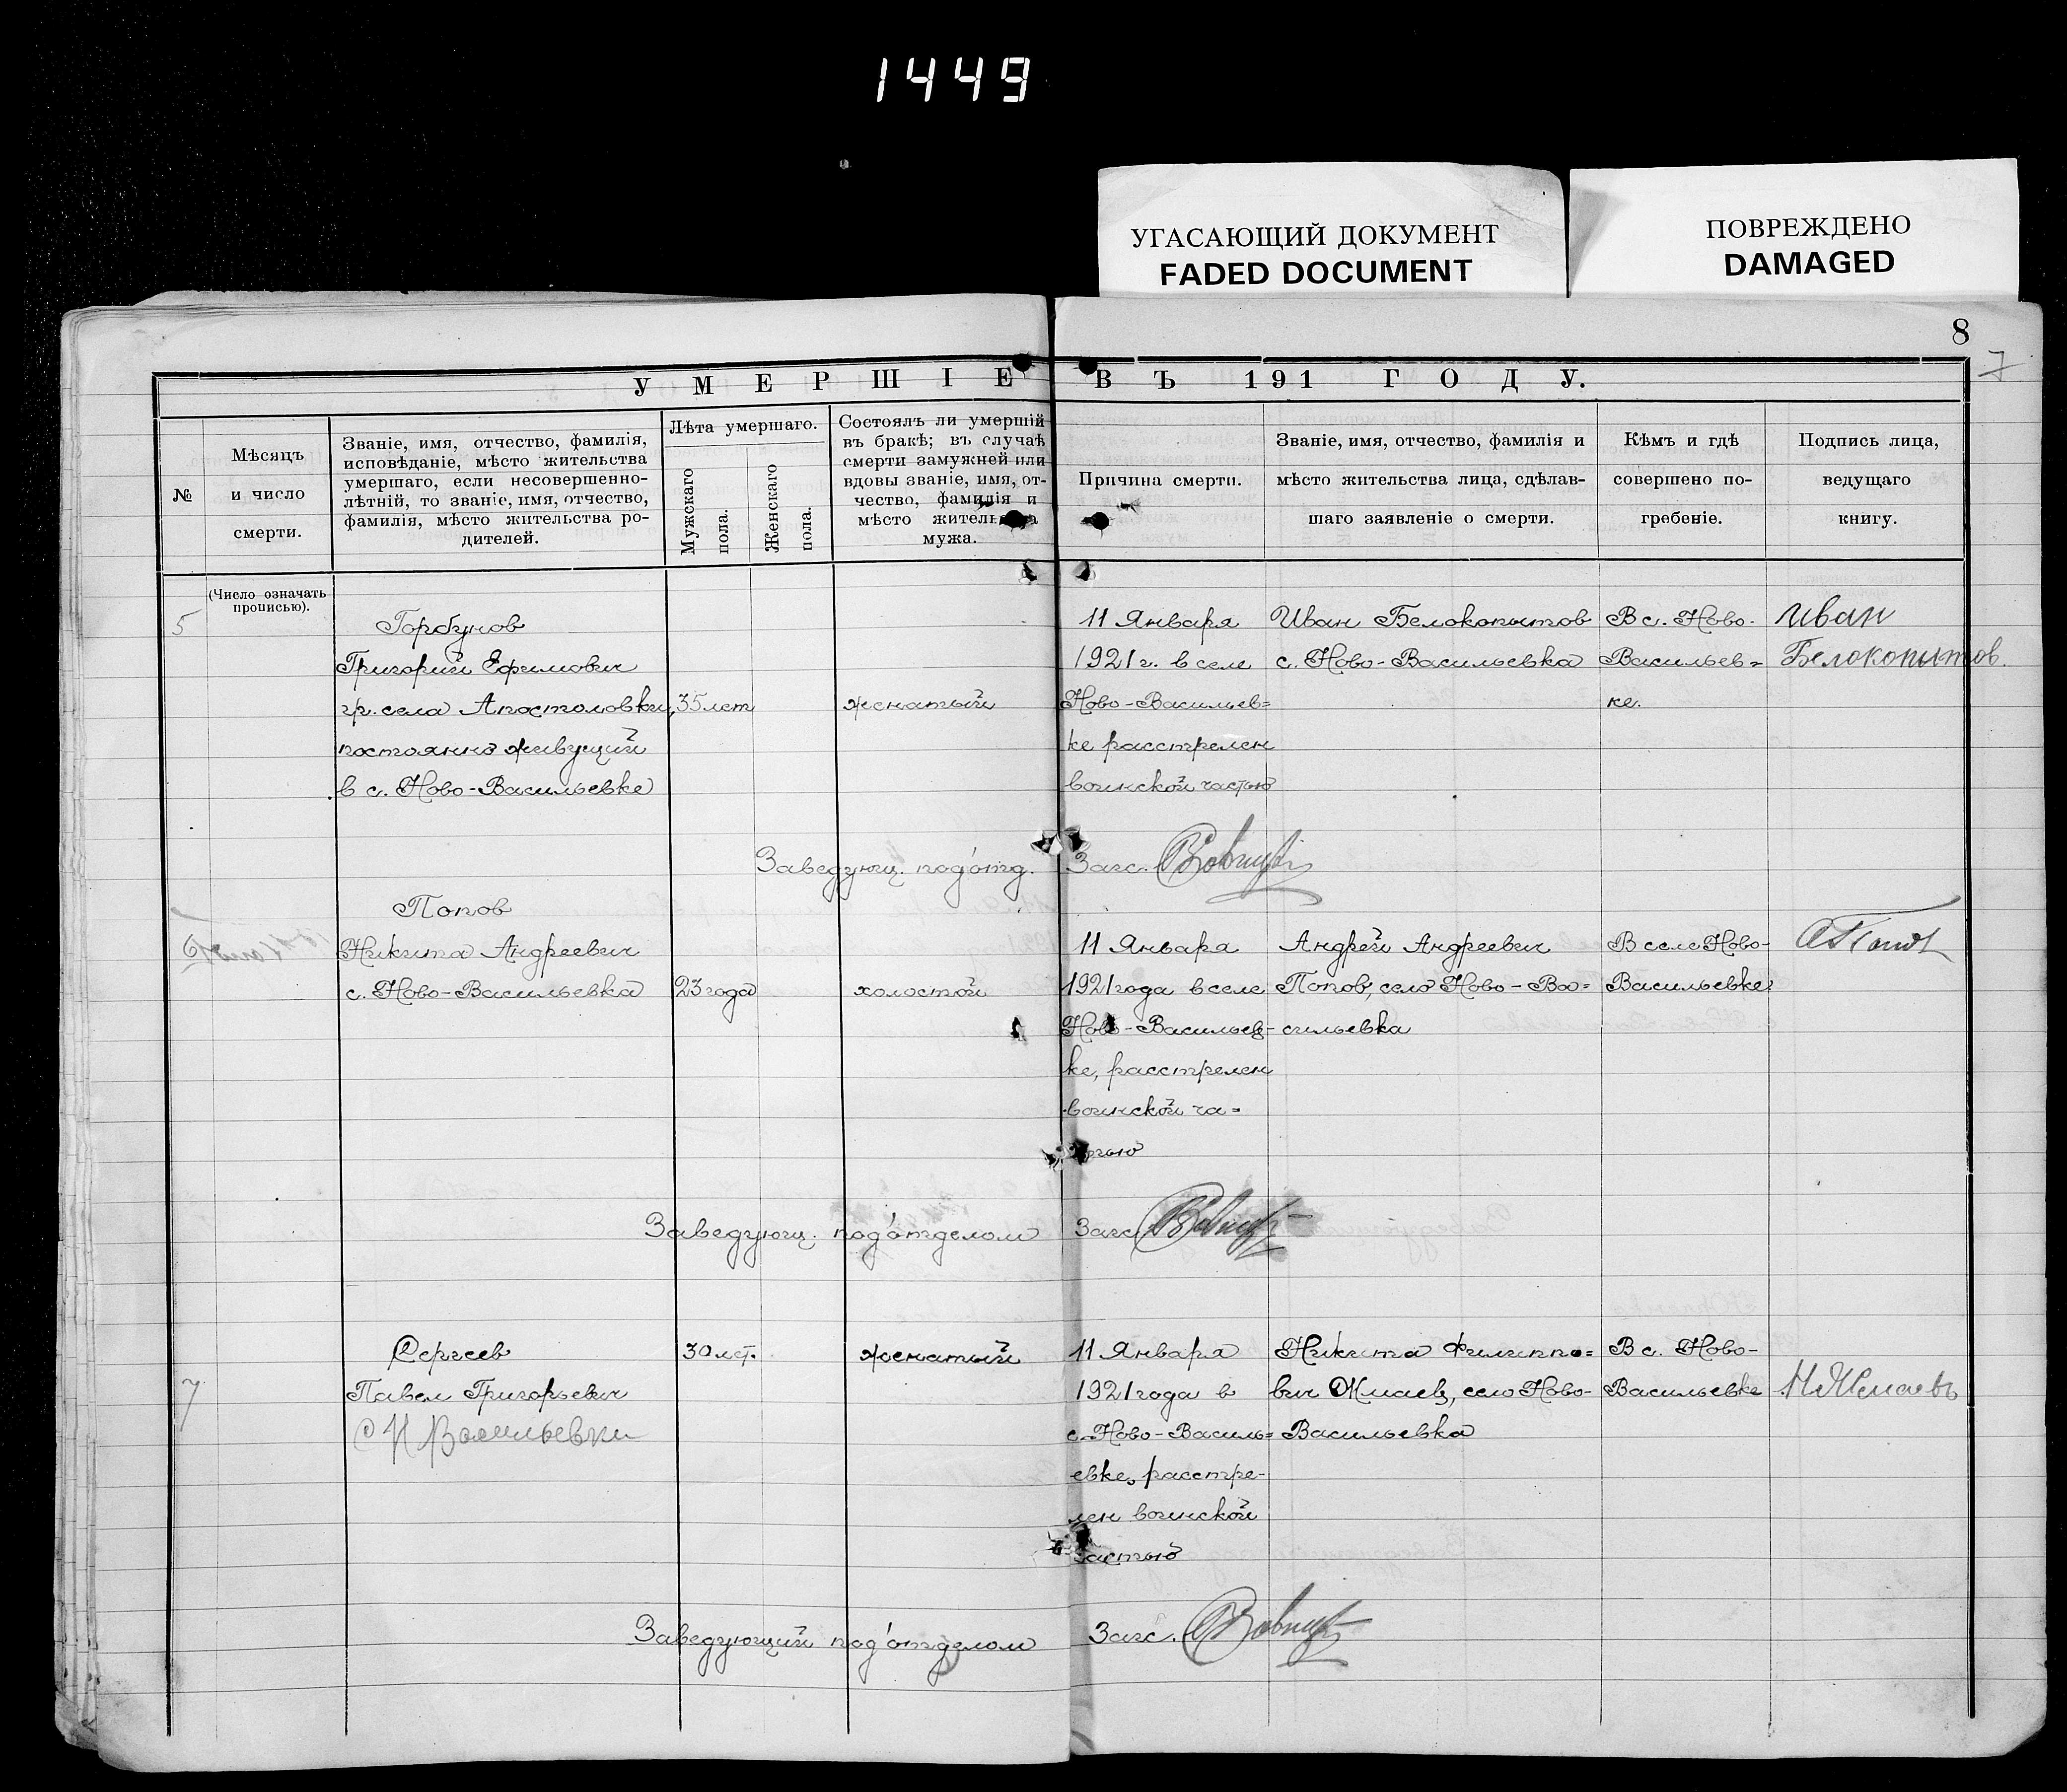 1449
УГАСАЮЩИЙ ДОКУМЕНТ
FADED DOCUMENT
ПОВРЕЖДЕНО
DAMAGED
8
7
УМЕРШІЕ ВЪ 191 ГОДУ.
№
Мѣсяцъ
и число
смерти.
Званіе, имя, отчество, фамилія,
исповѣданіе, мѣсто жительства
умершаго, если несовершенно-
лѣтній, то званіе, имя, отчество,
фамилія, мѣсто жительства ро-
дителей.
Лѣта умершаго.
Мужскаго
пола.
Женскаго
пола.
Состоялъ ли умершій
въ бракѣ; въ случаѣ
смерти замужней или
вдовы званіе, имя, от-
чество, фамилія и
мѣсто жительства
мужа.
Причина смерти.
Званіе, имя, отчество, фамилія и
мѣсто жительства лица, сдѣлав-
шаго заявленіе о смерти.
Кѣмъ и гдѣ
совершено по-
гребеніе.
Подпись лица,
ведущаго
книгу.
(Число означать
прописью).
5
Горбунов
Григорий Ефимович
гр. села Апостоловки,
постоянно живущий
в с. Ново-Васильевке
35 лет
женатый
11 Января
1921 г. в селе
Ново-Васильев=
ке расстрелен
воинской частью
Иван Белокопытов
с. Ново-Васильевка
В с. Ново-
Васильев=
ке.
Иван
Белокопытов.
Заведующ. под'отд. Загс.
6
Попов
Никита Андреевич
с. Ново-Васильевка
23 года
холостой
11 Января
1921 года в селе
Ново-Васильев-
ке, расстрелен
воинской ча=
стью
Андрей Андреевич
Попов, село Ново-Ва=
сильевка
В селе Ново-
Васильевке
АПопов
Заведующ. под'отделом Загс.
7
Сергеев
Павел Григорьевич
с Н Васильевки
30 лет.
женатый
11 Января
1921 года в
с. Ново-Василь=
евке, расстре-
лен воинской
частью
Никита Филиппо=
вич Жмаев, село Ново-
Васильевка
В с. Ново-
Васильевке
Н Жмаевъ
Заведующий под'отделом Загс.